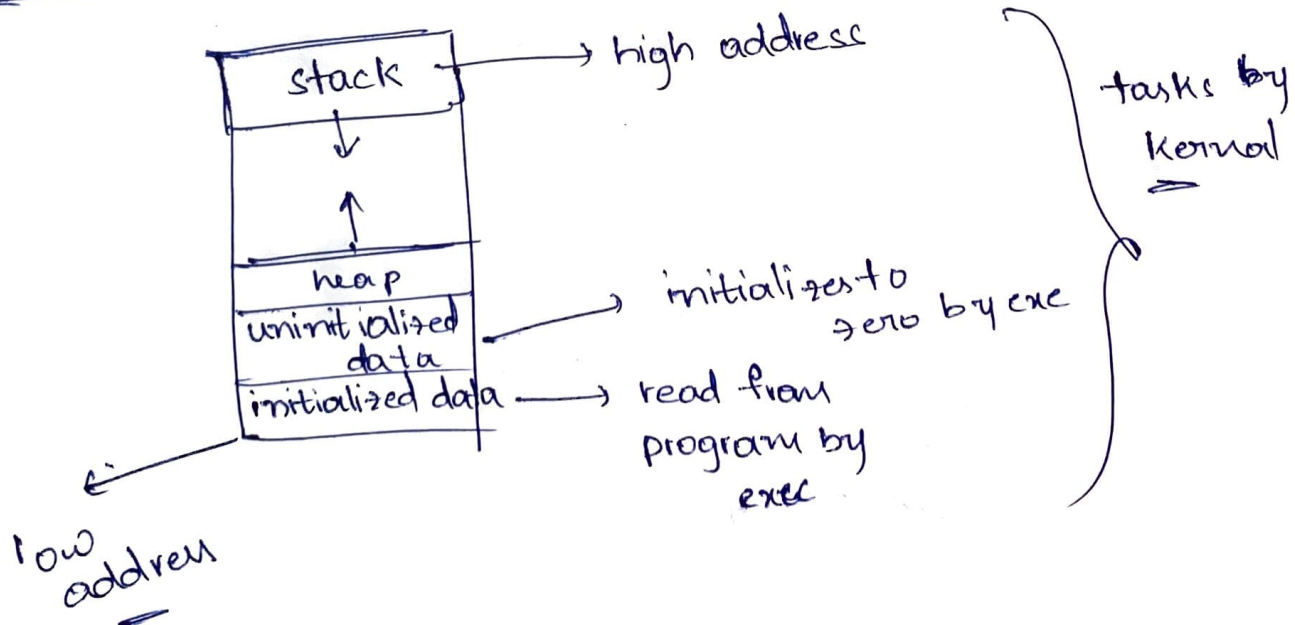 stack
high address
tasks by
kernal
heap
uninitialized
data
initializes to
zero by exe
initialized data
read from
program by
exec
low
address